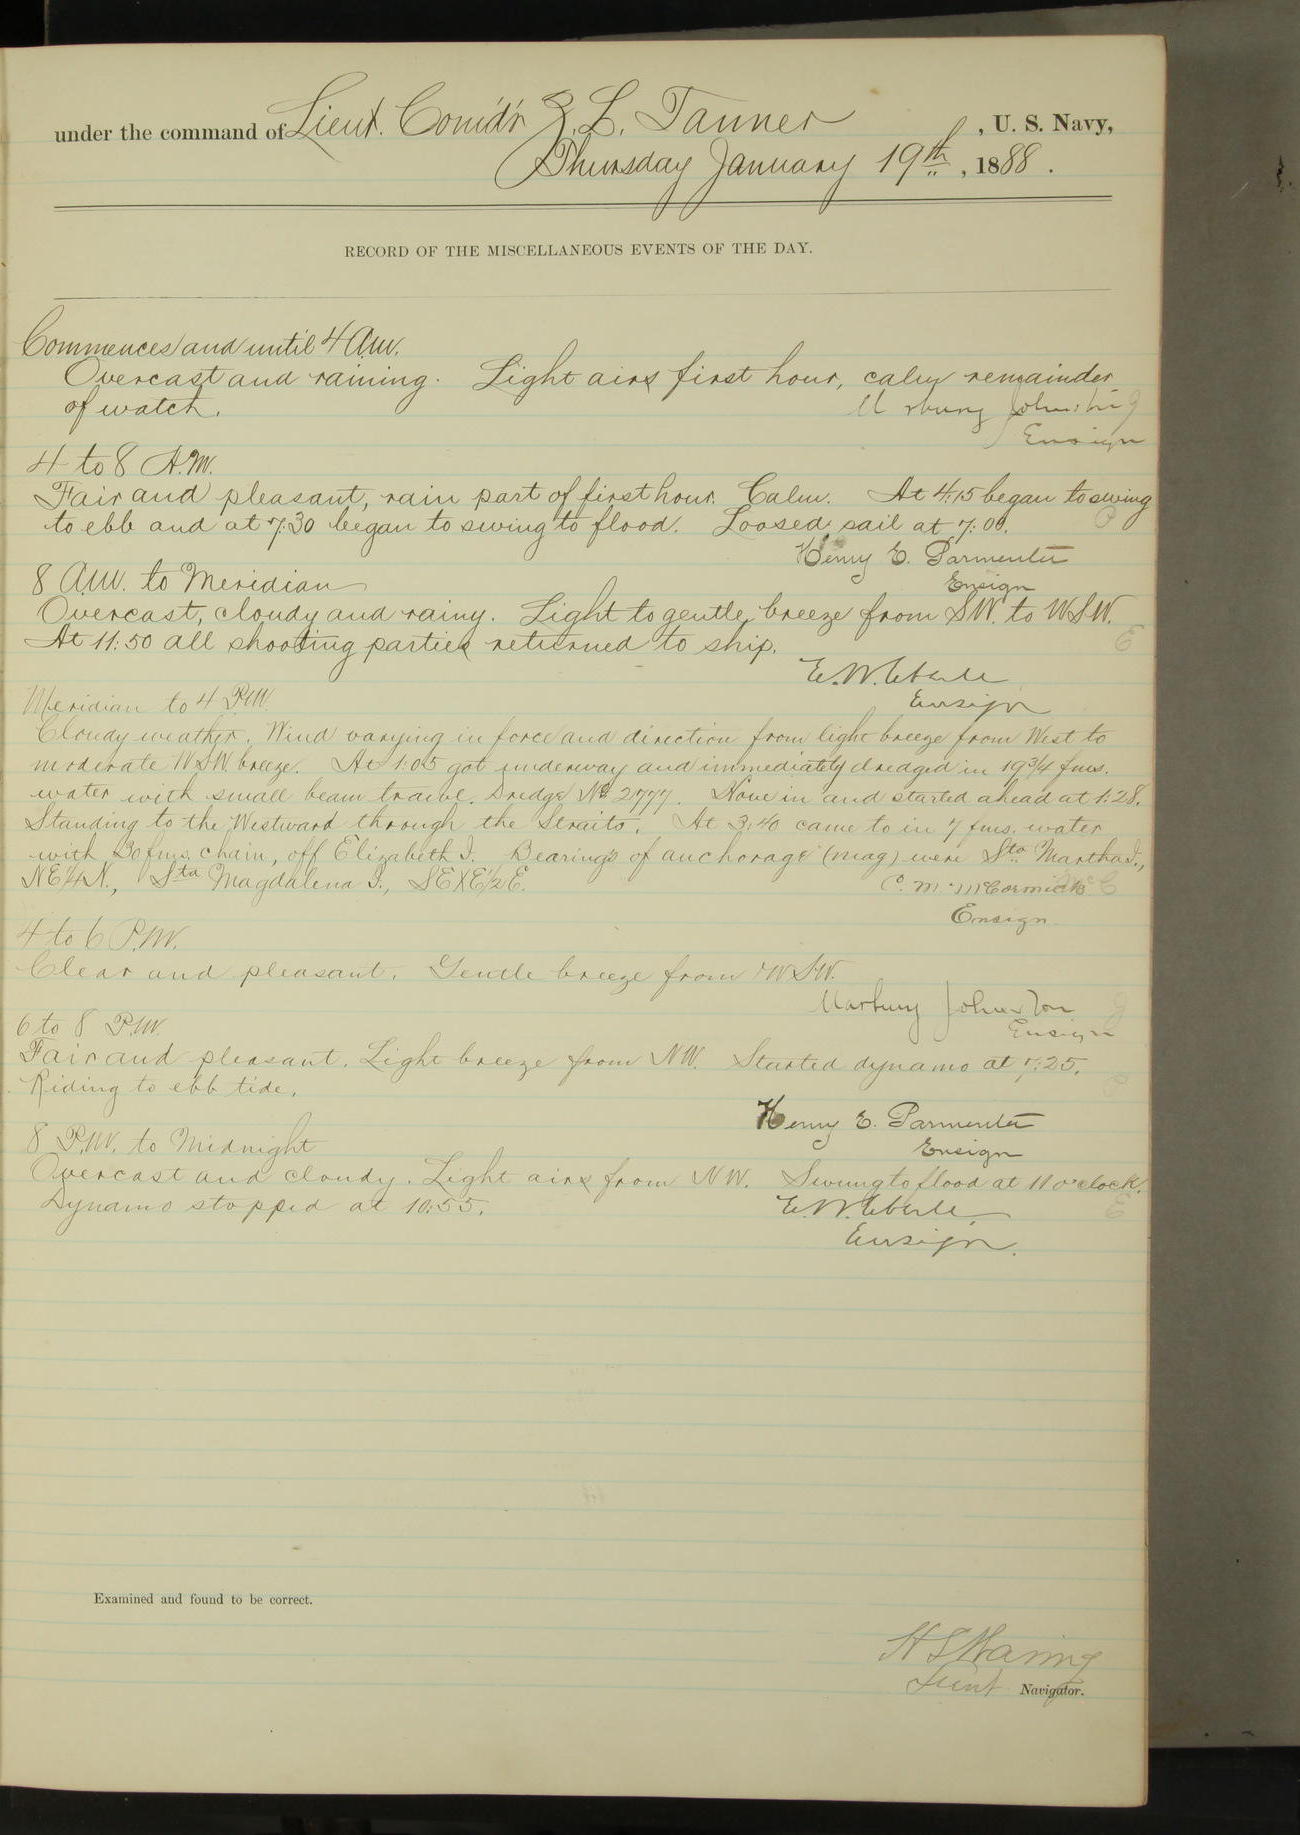 under the command of Lieut. Com'd'r Z. L. Tanner, U. S. Navy,
Thursday January 19th, 1888.
RECORD OF THE MISCELLANEOUS EVENTS OF THE DAY.
Commences and until 4 A.M.
Overcast and raining. Light airs first hour, calm remainder
of watch. Marbury Johnston J
Ensign
4 to 8 A.M.
Fair and pleasant, rain part of first hour. Calm. At 4:15 began to swing
to ebb and at 7:30 began to swing to flood. Loosed sail at 7:00. P
Henry E. Parmenter
Ensign
8 A.M. to Meridian
Overcast, cloudy and rainy. Light to gentle breeze from SW. to WSW.
At 11:50 all shooting parties returned to ship. E
E. W. Eberle
Ensign
Meridian to 4 P.M.
Cloudy weather. Wind varying in force and direction from light breeze from West to
moderate WSW. breeze. At 1:05 got underway and immediately dredged in 19 3/4 fms.
water with small beam trawl. Dredge No. 2777. Hove in and started ahead at 1:28.
Standing to the Westward through the Straits. At 3:40 came to in 7 fms. water
with 30 fms. chain, off Elizabeth I. Bearings of anchorage (mag) were Sta Martha I.,
NE 1/4 N., Sta Magdalena I., SE X E 1/2 E. C. M. McCormick McC
Ensign.
4 to 6 P.M.
Clear and pleasant. Gentle breeze from WSW.
Marbury Johnston J
Ensign
6 to 8 P.M.
Fair and pleasant. Light breeze from NW. Started dynamo at 7:25.
Riding to ebb tide. P
Henry E. Parmenter
Ensign
8 P.M. to Midnight
Overcast and cloudy. Light airs from NW. Swung to flood at 11 o'clock.
Dynamo stopped at 10:55. E. W. Eberle. E
Ensign.
Examined and found to be correct.
H S Waring
Lieut Navigator.